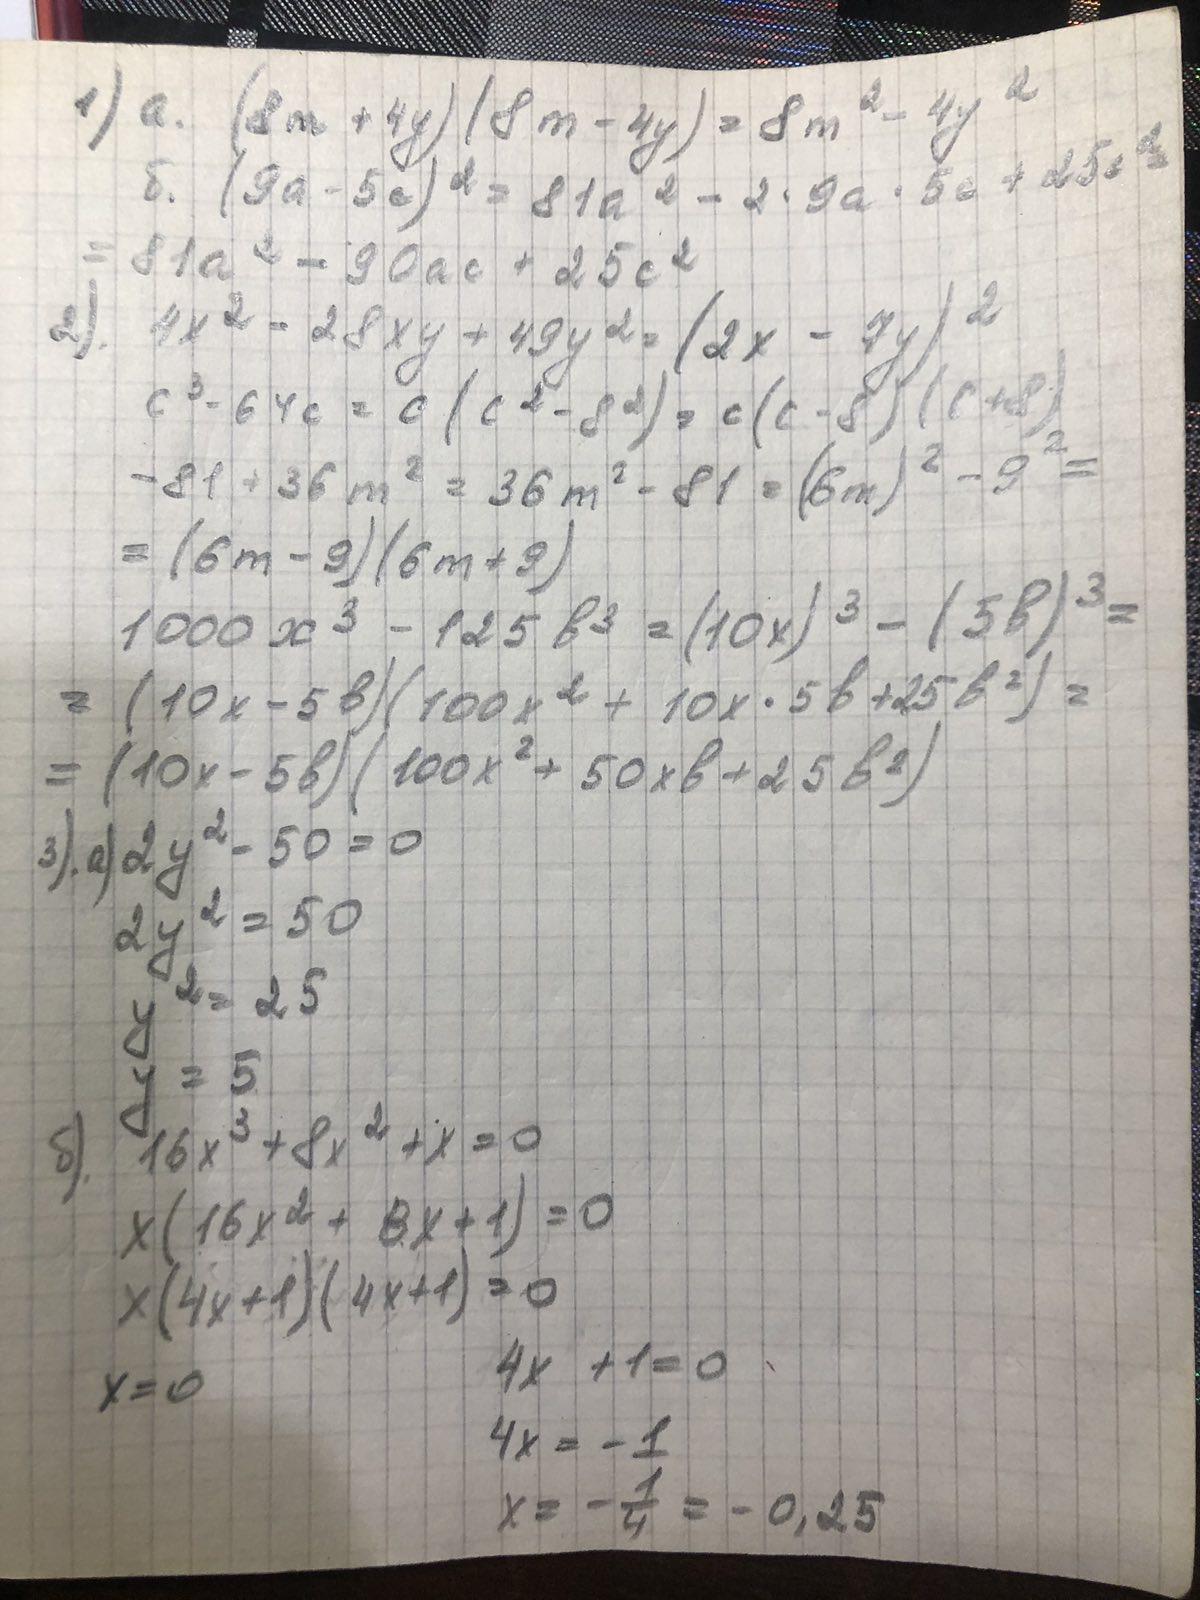 1) а. (8m + 4y)(8m - 4y) = 8m² - 4y²
б. (9a - 5c)² = 81a² - 2·9a·5c + 25c² =
= 81a² - 90ac + 25c²
2). 4x² - 28xy + 49y² = (2x - 7y)²
c³ - 64c = c(c² - 8²) = c(c - 8)(c + 8)
-81 + 36m² = 36m² - 81 = (6m)² - 9² =
= (6m - 9)(6m + 9)
1000x³ - 125b³ = (10x)³ - (5b)³ =
= (10x - 5b)(100x² + 10x·5b + 25b²) =
= (10x - 5b)(100x² + 50xb + 25b²)
3). а) 2y² - 50 = 0
2y² = 50
y² = 25
y = 5
б). 16x³ + 8x² + x = 0
x(16x² + 8x + 1) = 0
x(4x + 1)(4x + 1) = 0
x = 0 4x + 1 = 0
4x = -1
x = -1/4 = -0,25